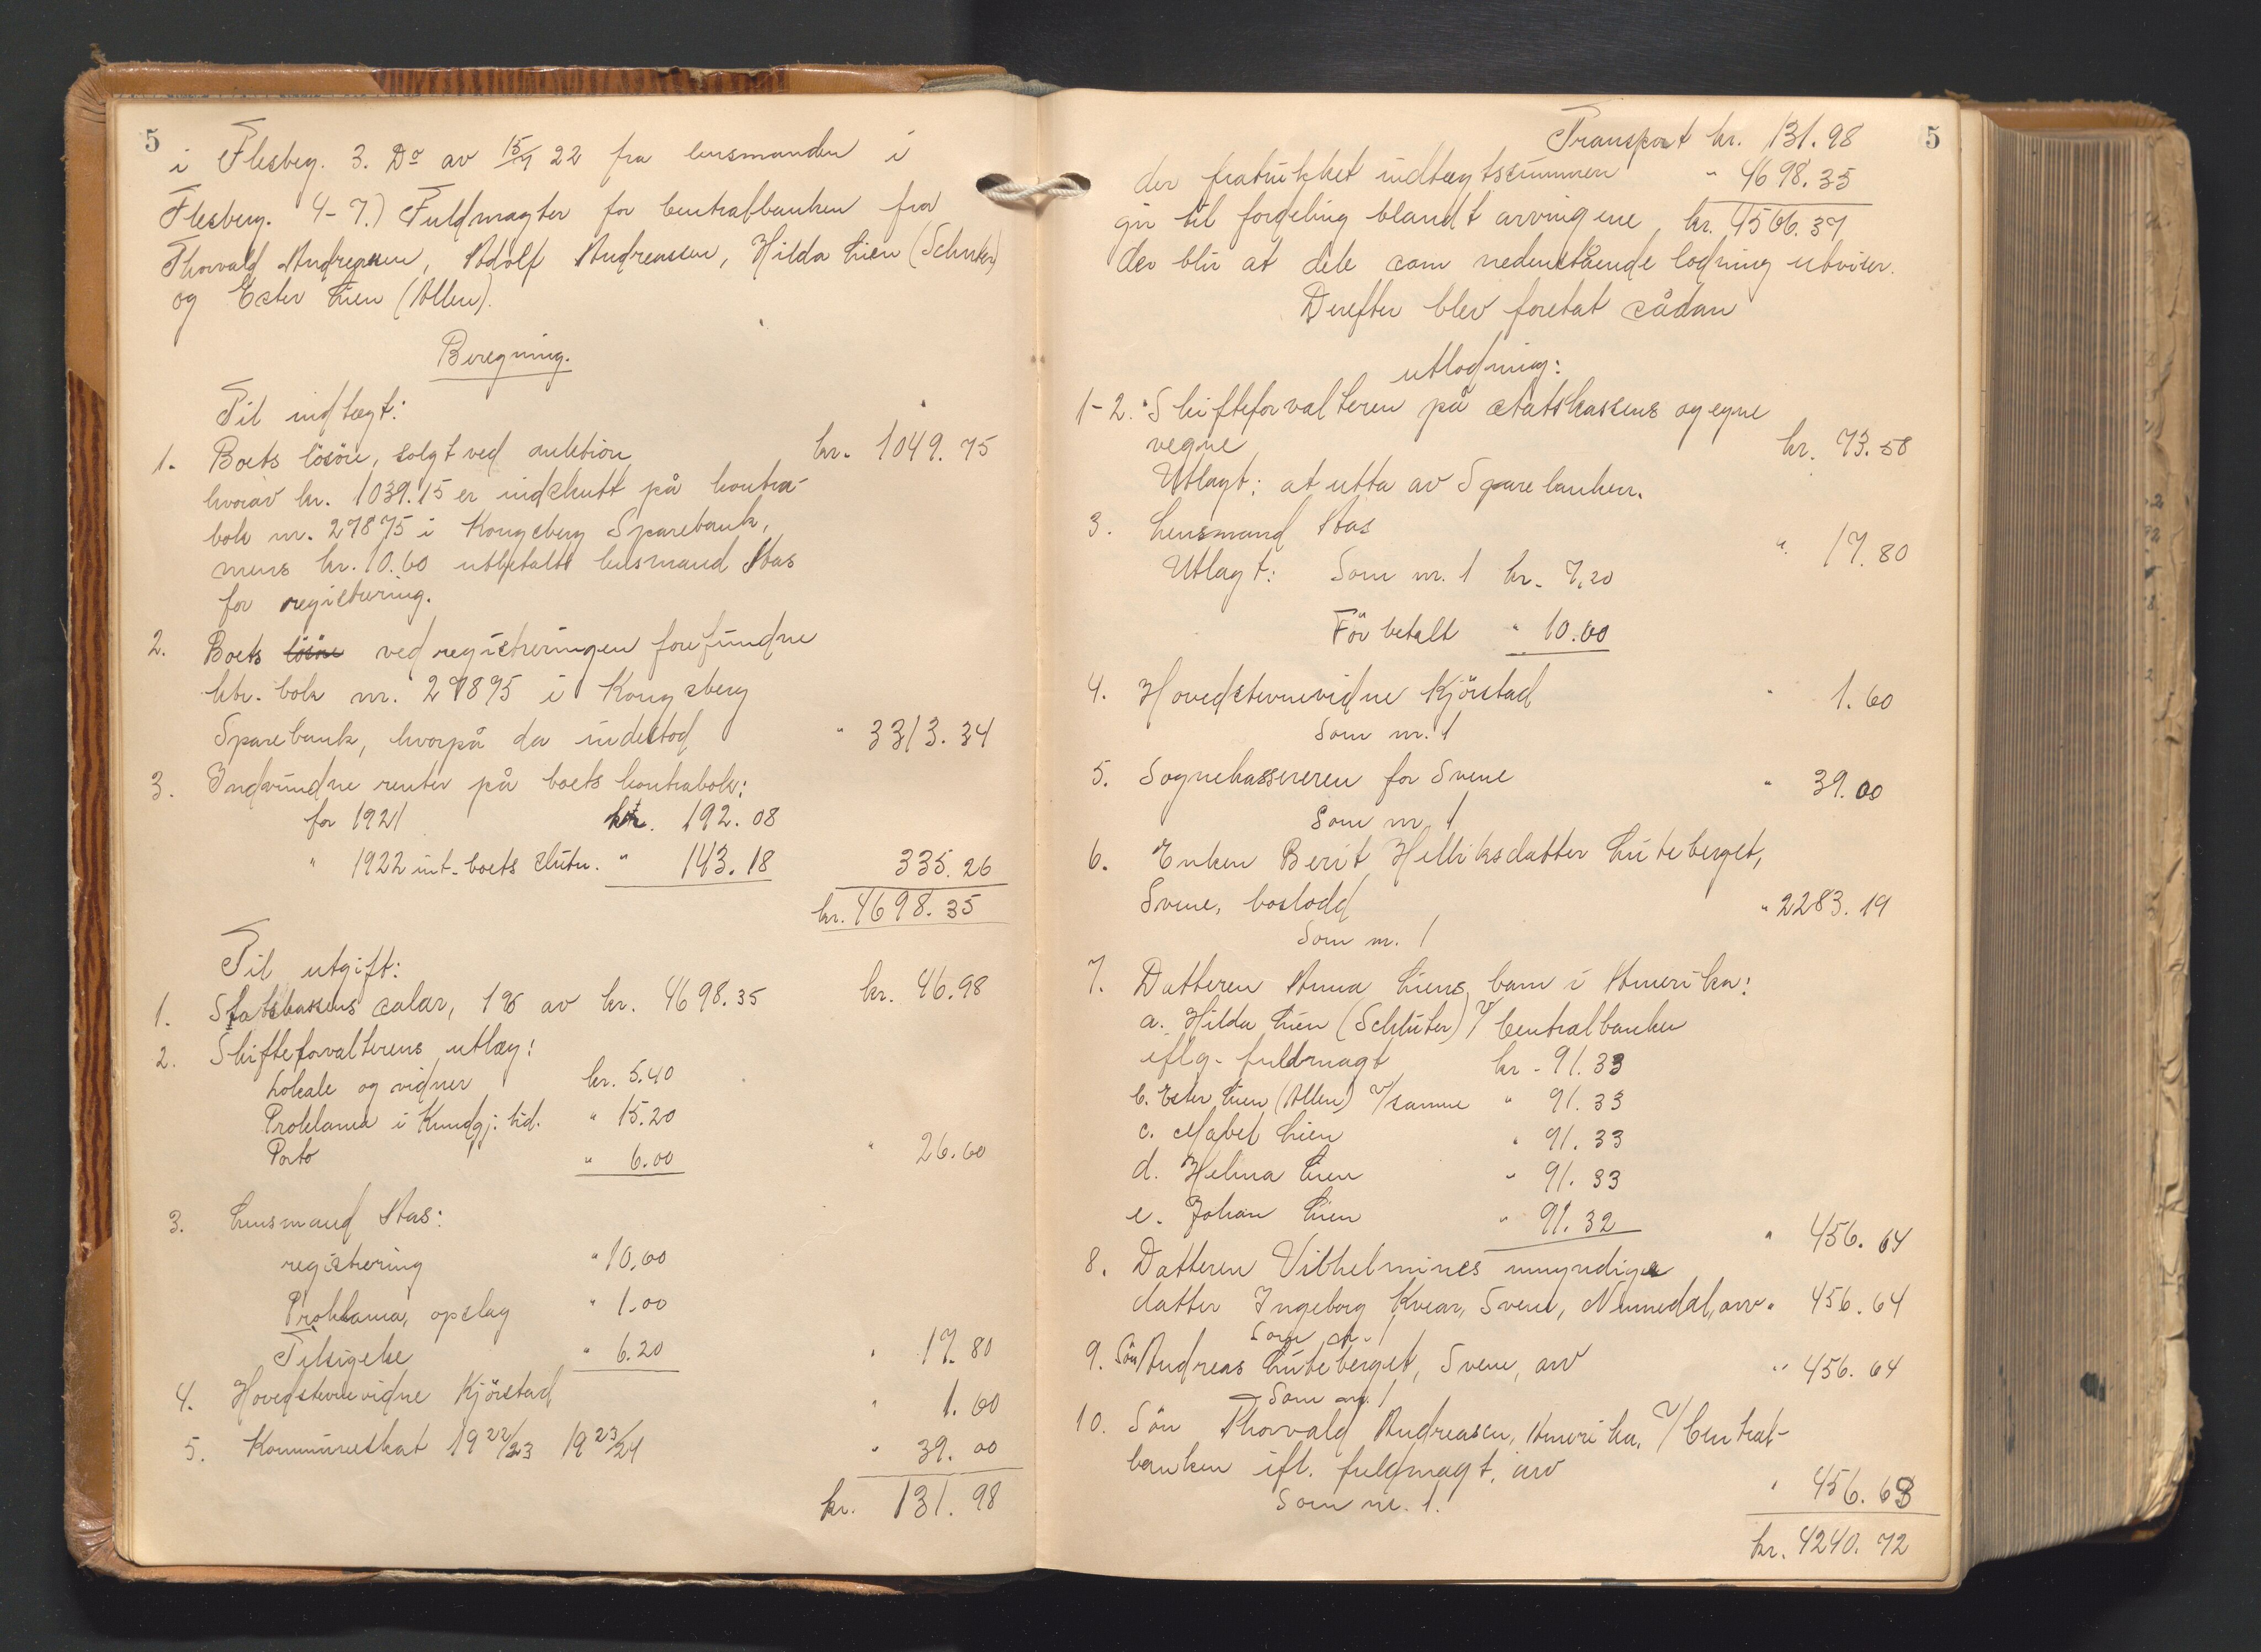 5
i Flesberg. 3. Do av 15/9 22 fra lensmanden i
Flesberg. 4-7.) Fuldmagter for Centralbanken fra
Thorvald Andreasen, Adolf Andreassen, Hilda Lien (Schluter)
og Ester Lien (Allen).
Beregning.
Til indtægt:
1. Boets lösöre, solgt ved auktion kr. 1049.75
hvorav kr. 1039.15 er indskutt på kontra-
bok nr. 27875 i Kongsberg Sparebank,
mens kr. 10.60 utbetalt lensmand Aas
for registrering.
2. Boets lösöre ved registreringen forefundne
ktr. bok nr. 27895 i Kongsberg
Sparebank, hvorpå da indestod " 3313.34
3. Indvundne renter på boets kontrabok:
for 1921 kr. 192.08
" 1922 int. boets slutn. " 143.18 335.26
kr. 4698.35
Til utgift:
1. Statskassens salær, 1% av kr. 4698.35 kr. 46.98
2. Skifteforvalterens utlæg:
Lokale og vidner kr. 5.40
Proklama i Kundgj. tid. " 15.20
Porto " 6.00 " 26.60
3. Lensmand Aas:
registrering " 10.60
Proklama, opslag " 1.00
Tilsigelse " 6.20 " 17.80
4. Hovedstevnevidne Kjörstad " 1.60
5. Kommuneskat 19 22/23 19 23/24 " 39.00
kr. 131.98
5
Transport kr. 131.98
der fratrukket indtægtssummen " 4698.35
gir til fordeling blandt arvingene kr. 4566.37
der blir at dele som nedenstående lodning utviser.
Derefter blev foretat sådan
utlodning:
1-2. Skifteforvalteren på statskassens og egne
vegne kr. 73.58
Utlagt: at utta av Sparebanken.
3. Lensmand Aas " 17.80
Utlagt: Som nr. 1 kr. 7.20
För betalt " 10.60
4. Hovedstevnevidne Kjörstad " 1.60
Som nr. 1
5. Sognekassereren for Svene " 39.00
Som nr. 1
6. Enken Berit Helliksdatter Luteberget,
Svene, boslodd " 2283.19
Som nr. 1
7. Datteren Anna Liens barn i Amerika:
a. Hilda Lien (Schluter) v/ Centralbanken
iflg. fuldmagt kr. 91.33
b. Ester Lien (Allen) v/samme " 91.33
c. Mabel Lien " 91.33
d. Helma Lien " 91.33
e. Johan Lien " 91.32 " 456.64
8. Datteren Vilhelmines umyndige
datter Ingeborg Kvear, Svene, Numedal, arv " 456.64
Som nr. 1
9. Sön Andreas Luteberget, Svene, arv " 456.64
Som nr. 1
10. Sön Thorvald Andreasen, Amerika, v/ Central-
banken ifl. fuldmagt, arv " 456.63
Som nr. 1.
kr. 4240.72